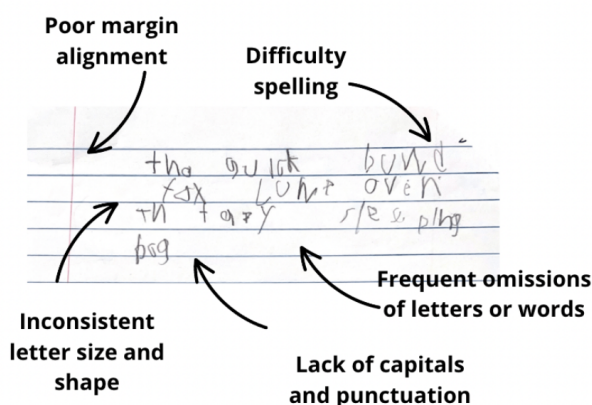 Poor margin
alignment
Difficulty
spelling
tha quick bund
oven
th tazy sleeping
bog
Frequent omissions
of letters or words
Inconsistent
letter size and
shape
Lack of capitals
and punctuation